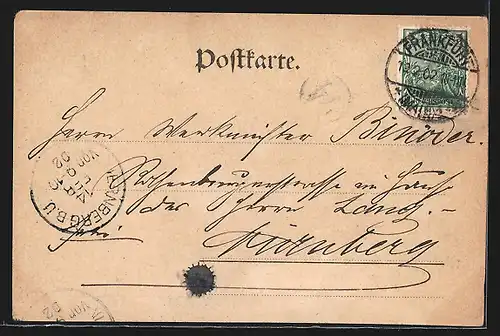 Postkarte.
FRANKFURT
Herrn Werkmeister Binder.
Rothenburgerstrasse im Haus
des Herrn Lang.-
Nürnberg
NÜRNBERG B.U.